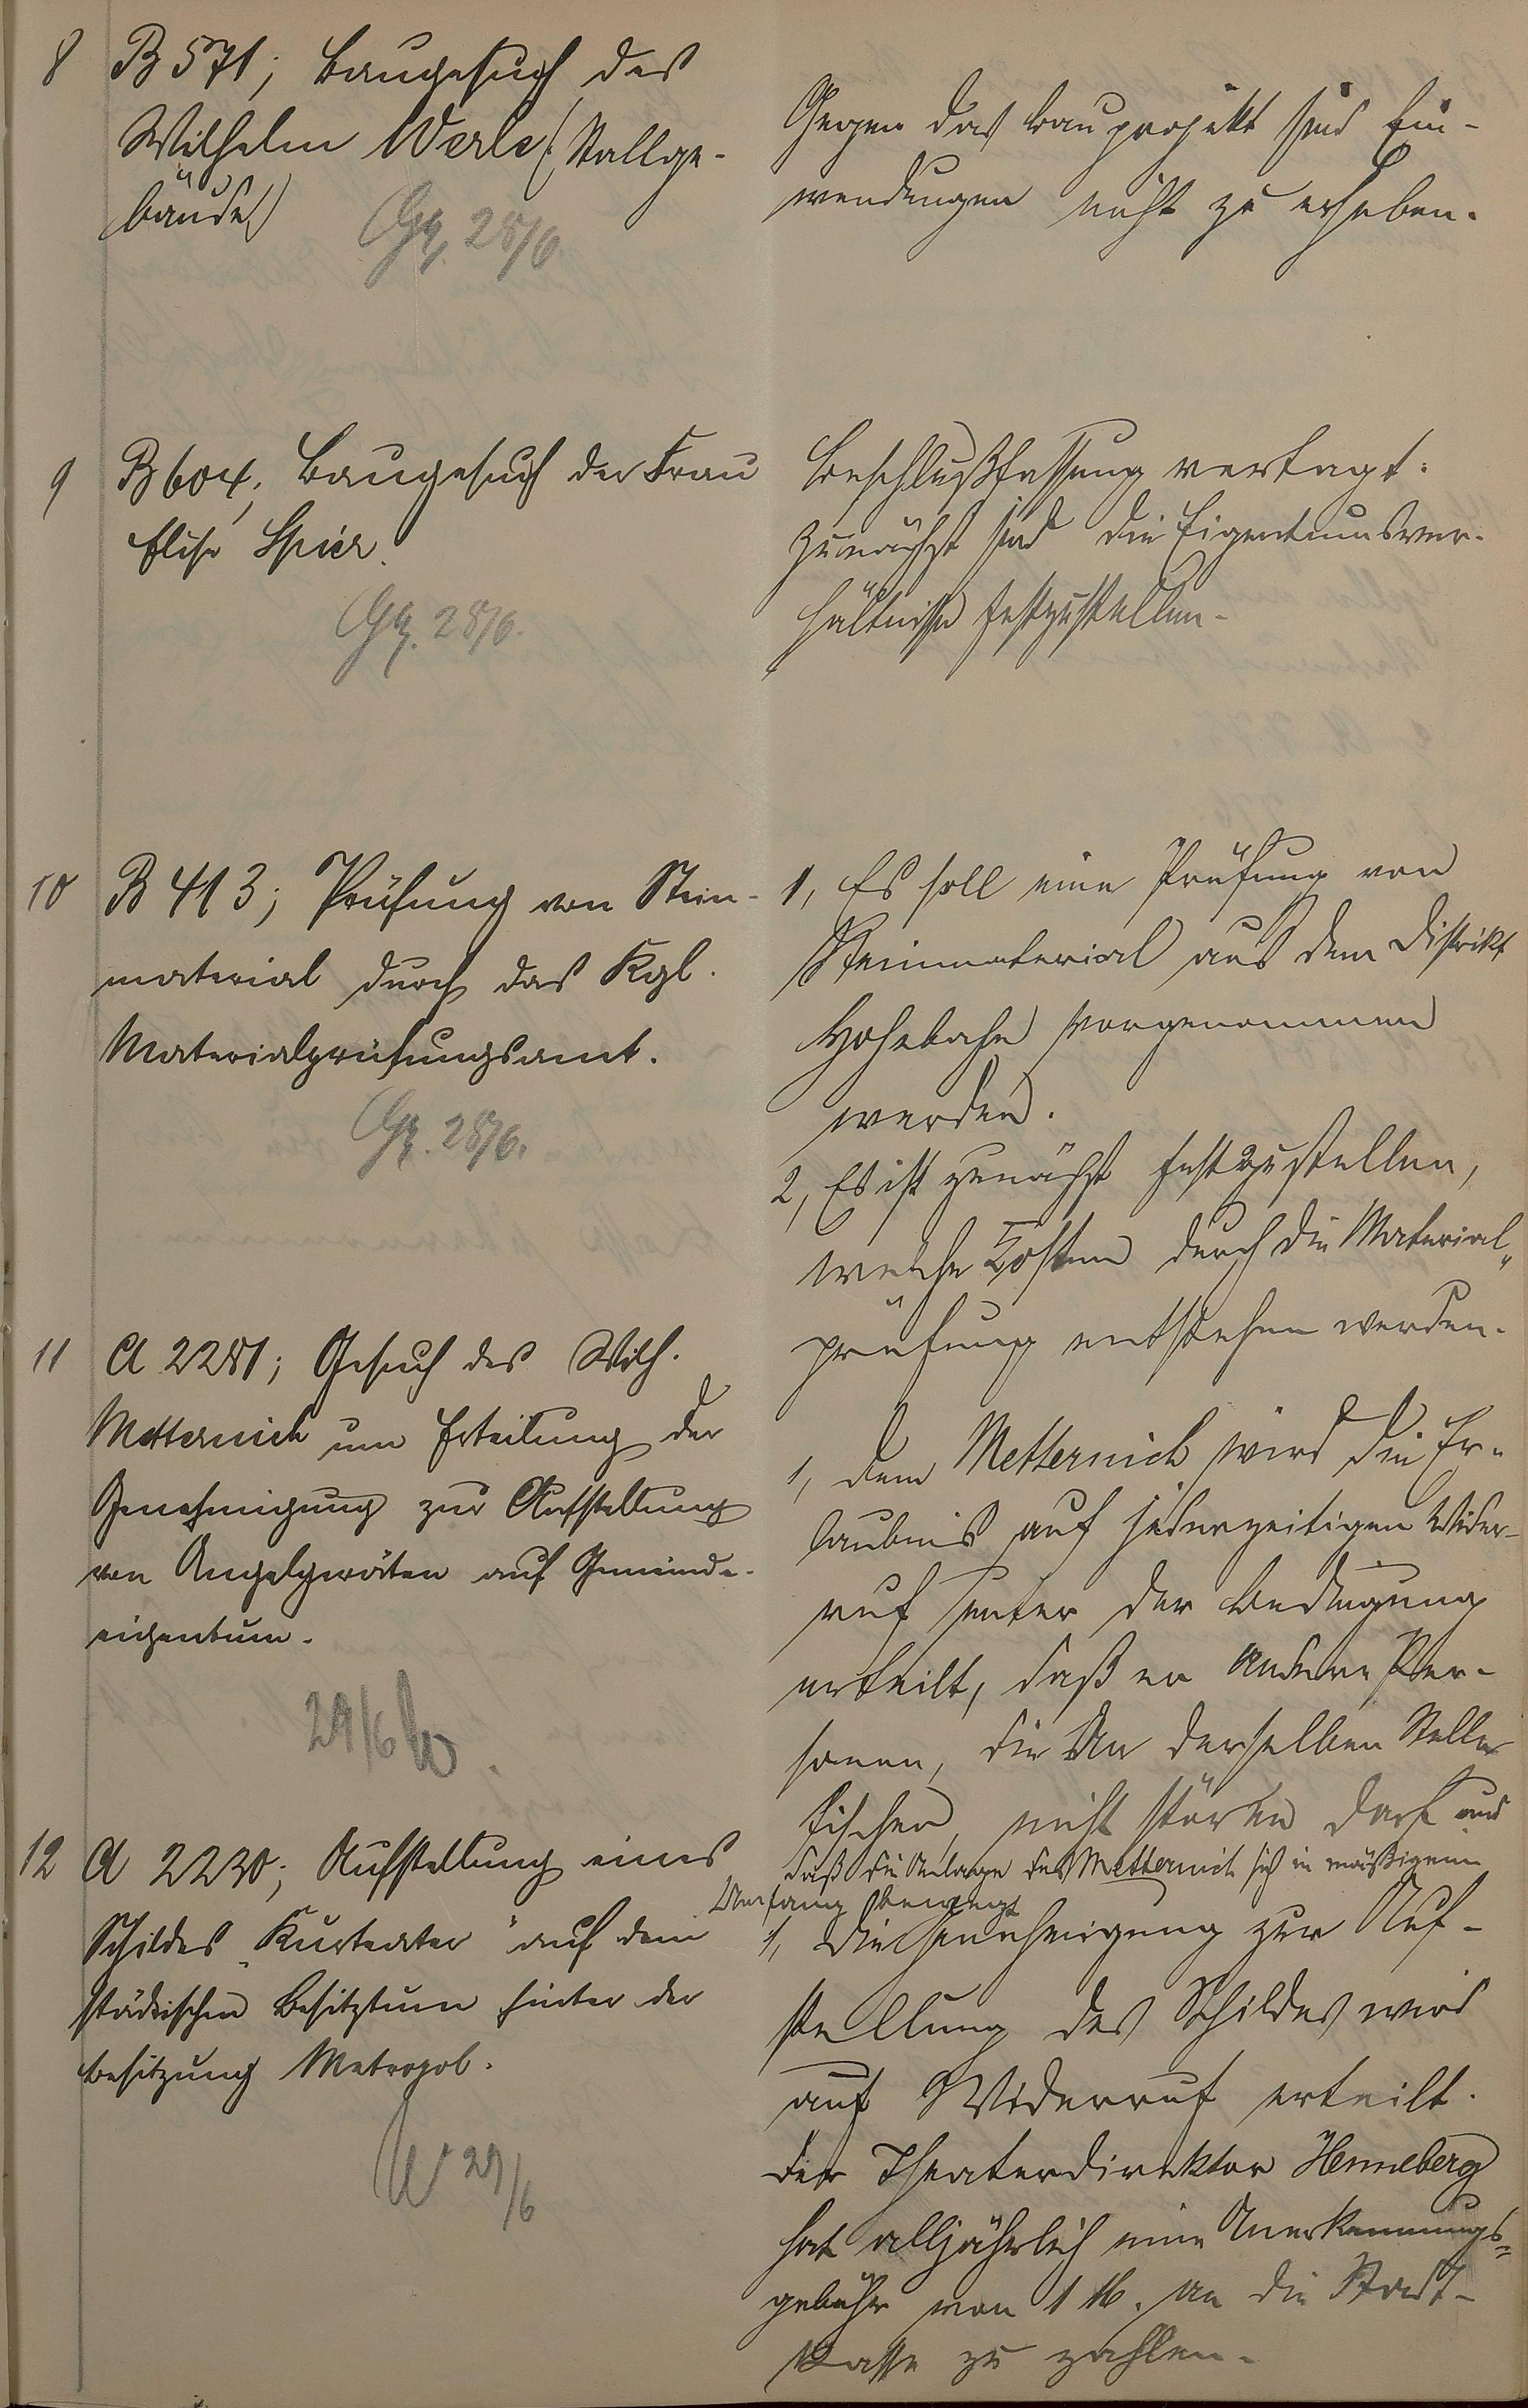 8 B 571; Baugesuch des
Wilhelm Werle (Stallge-
bäude)
Gg. 28/6.
Gegen das Bauprojekt sind Ein-
wendungen nicht zu erheben.
9 B 604; Baugesuch der Frau
Elise Spier.
Gg. 28/6.
Beschlußfassung vertagt.
Zunächst sind die Eigentumsver-
hältnisse festzustellen.
10 B 413; Prüfung von Stein-
material durch das Kgl.
Materialprüfungsamt.
Gg. 28/6.
1, Es soll eine Prüfung von
Steinmaterial aus dem Distrikt
Hohebahn vorgenommen
werden.
2, Es ist zunächst festzustellen,
welche Kosten durch die Material-
prüfung entstehen werden.
11 A 2281; Gesuch des Wilh.
Metternich um Erteilung der
Genehmigung zur Aufstellung
von Angelgeräten auf Gemeinde-
eigentum.
29/6
1, Dem Metternich wird die Er-
laubnis auf jederzeitigen Wider-
ruf unter der Bedingung
erteilt, daß er andere Per-
sonen, die an derselben Stelle
fischen, nicht stören darf und
daß die Anlage des Metternich sich in mäßigem
Umfang bewegt
12 A 2230; Aufstellung eines
Schildes „Kurteater" auf dem
städtischen Besitztum hinter der
Besitzung Metropol.
29/6
1, Die Genehmigung zur Auf-
stellung des Schildes wird
auf Widerruf erteilt.
Der Theaterdirektor Henneberg
hat alljährlich eine Anerkennungs-
gebühr von 1 M. an die Stadt-
kasse zu zahlen.